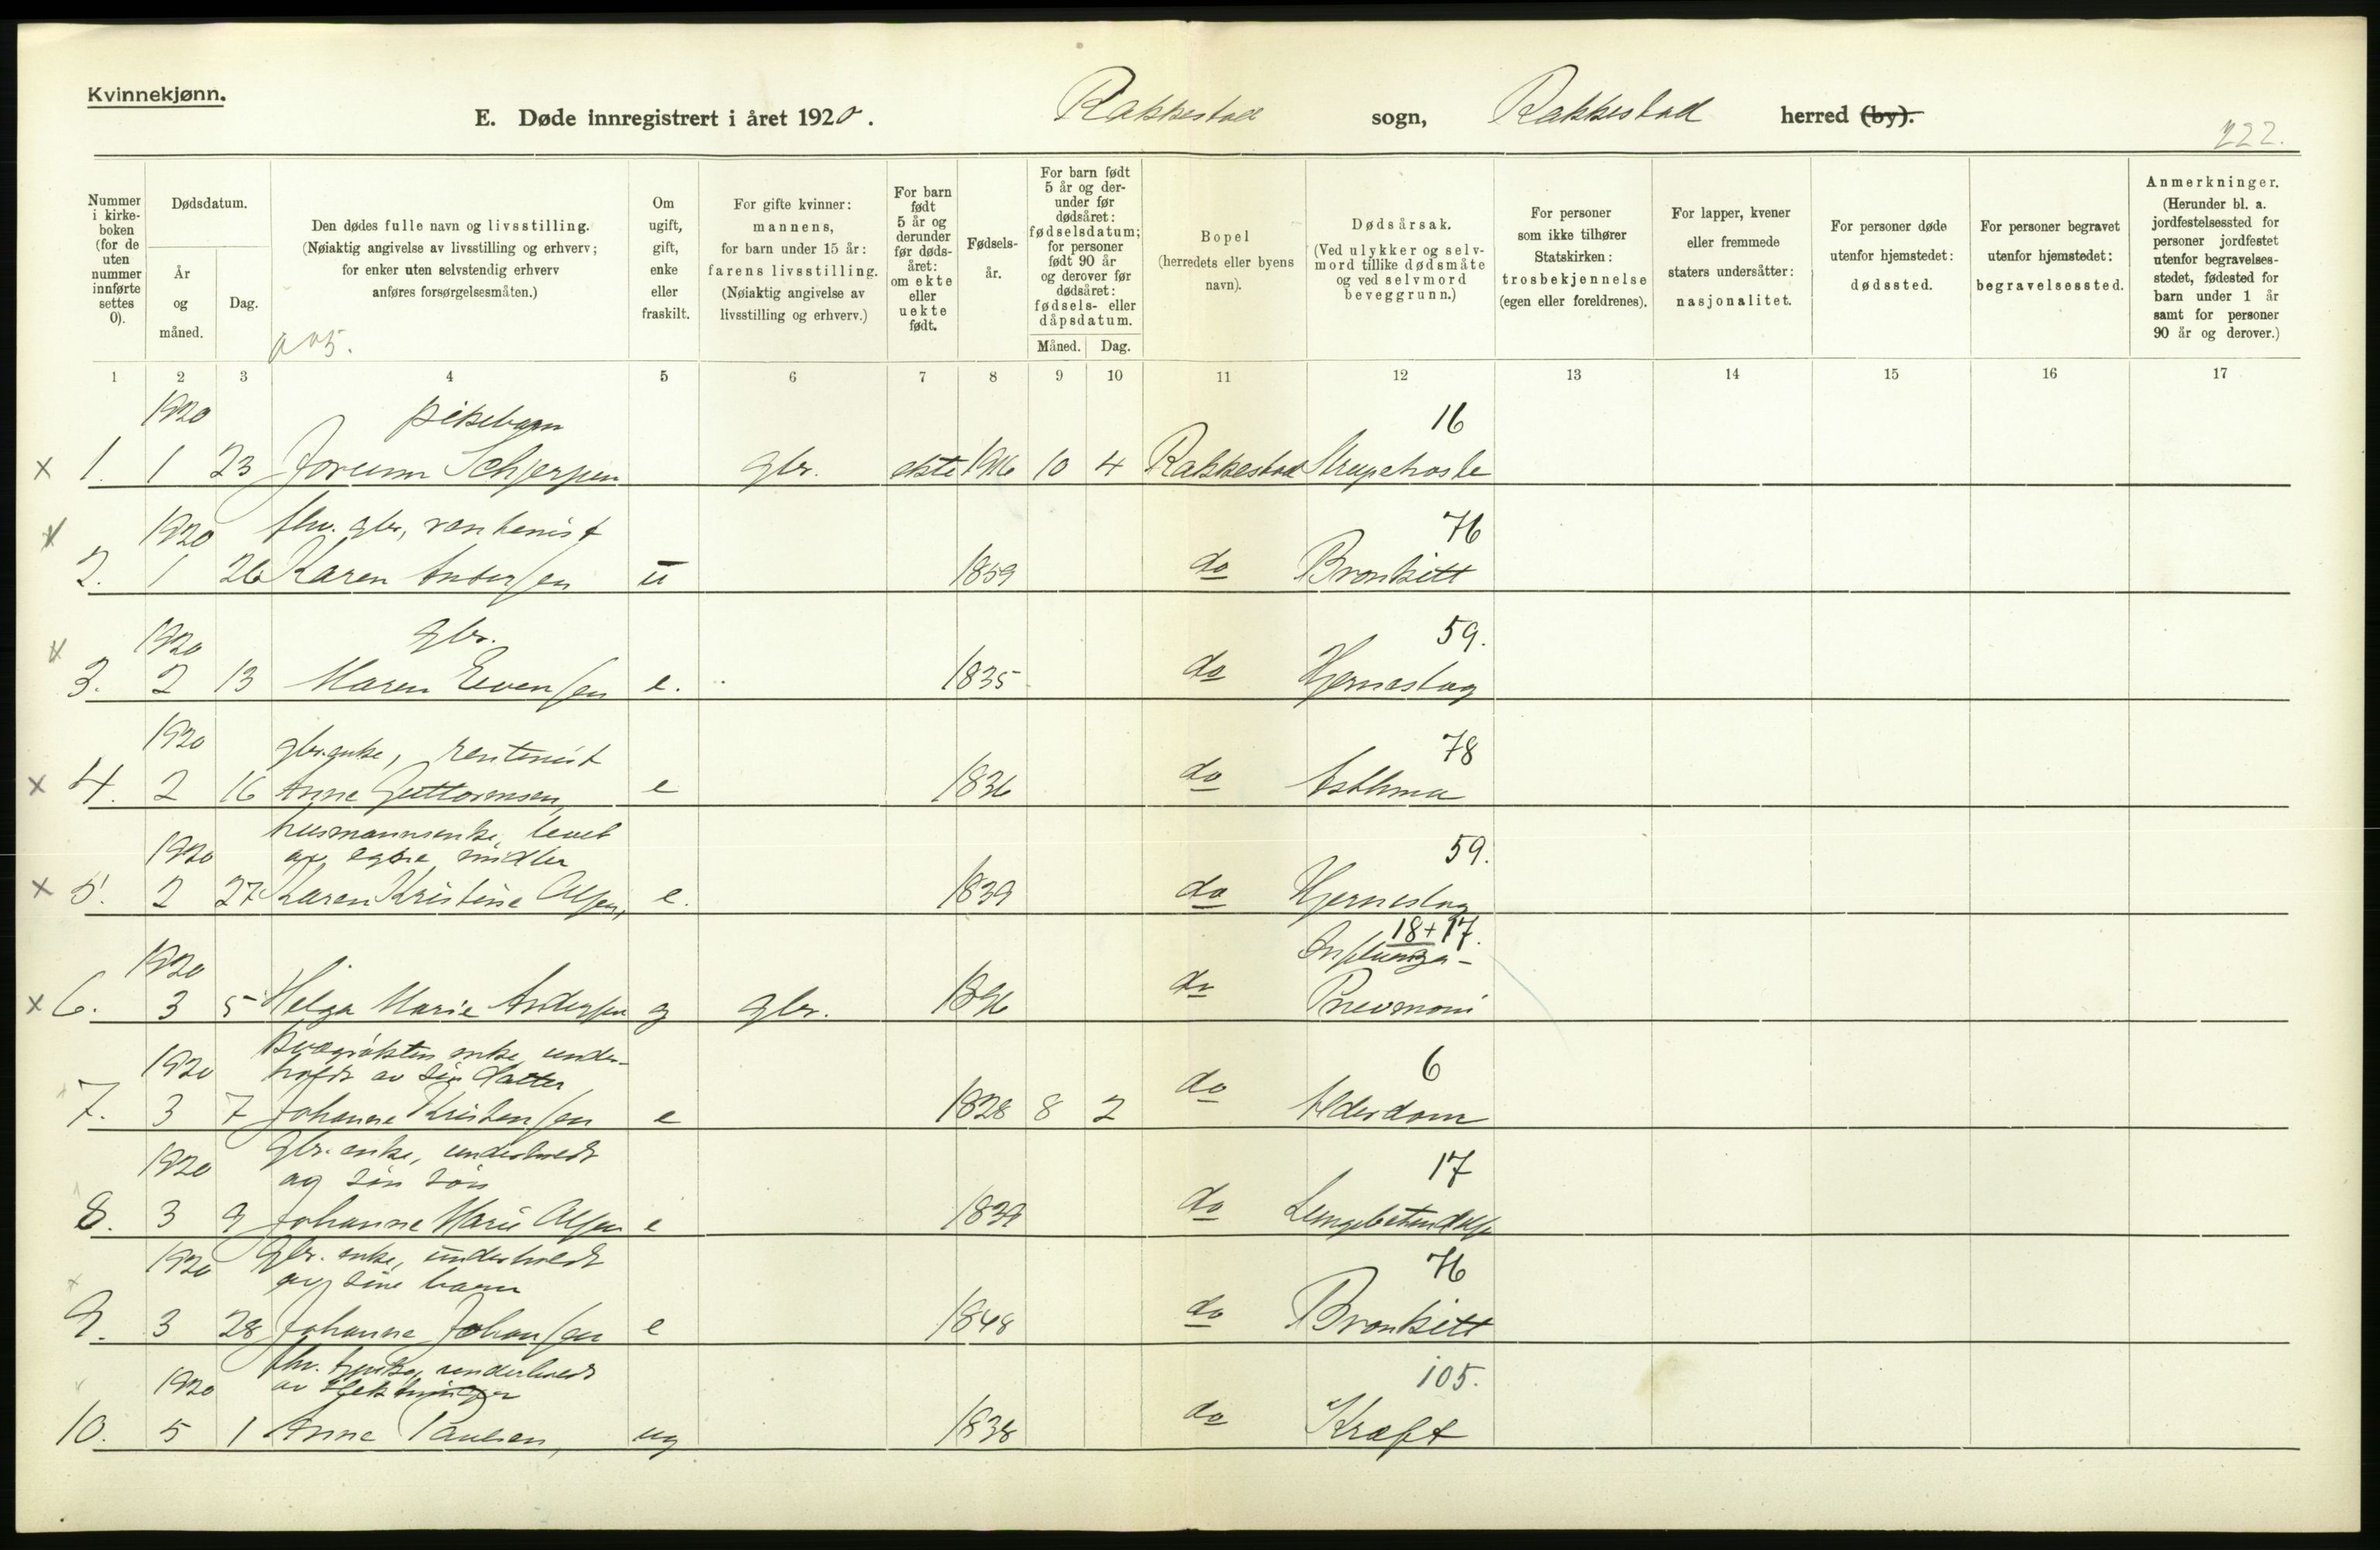 Kvinnekjønn.
E. Døde innregistrert i året 1920. Rakkestad sogn, Rakkestad herred (by).
222.
Nummer i kirke-boken (for de uten nummer innførte settes 0).
Dødsdatum.
År og måned.
Dag.
Den dødes fulle navn og livsstilling.
(Nøiaktig angivelse av livsstilling og erhverv;
for enker uten selvstendig erhverv
anføres forsørgelsesmåten.)
Om ugift, gift, enke eller fraskilt.
For gifte kvinner:
mannens,
for barn under 15 år:
farens livsstilling.
(Nøiaktig angivelse av
livsstilling og erhverv.)
For barn født 5 år og derunder før døds-året: om ekte eller uekte født.
Fødsels-år.
For barn født 5 år og der-under før dødsåret: fødselsdatum; for personer født 90 år og derover før dødsåret: fødsels- eller dåpsdatum.
Måned. Dag.
Bopel
(herredets eller byens
navn).
Dødsårsak.
(Ved ulykker og selv-
mord tillike dødsmåte
og ved selvmord
beveggrunn.)
For personer
som ikke tilhører
Statskirken:
trosbekjennelse
(egen eller foreldrenes).
For lapper, kvener
eller fremmede
staters undersåtter:
nasjonalitet.
For personer døde
utenfor hjemstedet:
dødssted.
For personer begravet
utenfor hjemstedet:
begravelsessted.
Anmerkninger.
(Herunder bl. a.
jordfestelsessted for
personer jordfestet
utenfor begravelses-
stedet, fødested for
barn under 1 år
samt for personer
90 år og derover.)
1 2 3 4 5 6 7 8 9 10 11 12 13 14 15 16 17
1920 pikebarn 16
x 1. 1 23 Jorunn Schjerpen gbr. ekte 1916 10 4 Rakkestad Strupehoste
1920 fhv. gbr, rentenist 76
2. 1 26 Karen Andersen u 1859 do Bronkitt
1920 gbr. 59.
3. 2 13 Maren Evensen e. 1835 do Hjerneslag
1920 gbr.enke, rentenist 78
x 4. 2 16 Anne Guttormsen, e 1836 do Asthma
husmannsenke, levet
1920 av egne midler 59.
x 5. 2 27 Karen Kristine Olsen, e. 1839 do Hjerneslag
18+17.
1920 Influenza-
x 6. 3 5 Helga Marie Andersen g gbr. 1896 do Pnevmoni
enke, under-
1920 holdt av sin datter 6
7. 3 7 Johanne Kristensen e 1828 8 2 do Alderdom
Gbr. enke, underholdt
1920 av sin søn 17
8. 3 9 Johanne Marie Olsen e 1839 do Lungebetendelse
Gbr. enke, underholdt
1920 av sine barn 76
9. 3 28 Johanne Johansen e 1848 do Bronkitt
fhv. underholdt
1920 av slektninger 105.
10. 5 1 Anne Paulsen, ug 1838 do Kræft